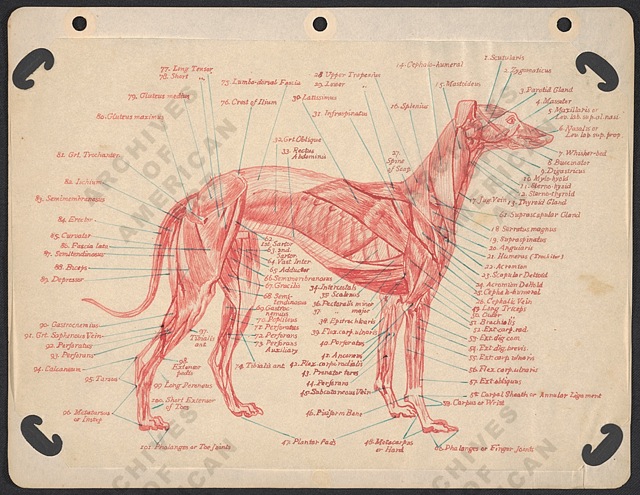 77. Long Tensor
78. Short
79. Gluteus medius
80. Gluteus maximus
75. Lumbo-dorsal Fascia
76. Crest of Ilium
28 Upper Trapezius
29. Lower
30. Latissimus
31. Infraspinatus
14. Cephalo-humeral
15. Mastoidem
16. Splenius
1. Scutularis
2. Zygomaticus
3. Parotid Gland
4. Masseter
5. Maxillaris or
Lev. lab. sup. al. nasi.
6. Nasalis or
Lev. lab. sup. prop.
7. Whisker-bed
8. Buccinator
9. Digastricus
10. Mylo-hyoid
11. Sterno-hyoid
12. Sterno-thyroid
13. Thyroid Gland
17. Jug. Vein
61. Suprascapular Gland
18. Serratus magnus
19. Supraspinatus
20. Angularis
21. Humerus
22. Acromion
23. Scapular Deltoid
24. Acromion Deltoid
25. Cephalo-humeral
26. Cephalic Vein
27.
Spine
of Scap.
32. Grt Oblique
33. Rectus
Abdominis
81. Grt. Trochanter
82. Ischium
83. Semimembranosus
84. Erector
85. Curvator
86. Fascia lata
87. Semitendinosus
88. Biceps
89. Depressor
62. Sartor
63. 2nd.
Sartor
64. Vast. Inter
65. Adductor
66. Semimembranosus
67. Gracilis
68. Semi-
tendinosus
69. Gastroc-
nemius
70. Popliteus
71. Perforatus
72. Perforans
73. Peroneus
Auxiliary
74. Tibialis ant
34. Intercostals
35. Scalenus
36. Pectoralis minor
37. major
38. Epitrochlearis
39. Flex. carp. ulnaris
40. Perforatus
41. Flex. carp. radialis
42. Anconeus
43. Pronator teres
44. Perforans
45. Subcutaneous Vein
46. Pisiform Bone
47. Plantar Pads
48. Metacarpus
or Hand
49. Long Triceps
50. Outer
51. Brachialis
52. Ext. carp. rad.
53. Ext. dig. com.
54. Ext. dig. brevis.
55. Ext. carp. ulnaris
56. Flex. carp. ulnaris
57. Ext. obliquus
58. Carpal Sheath or Annular Ligament
59. Carpus or Wrist
60. Phalanges or Finger Joints
90. Gastrocnemius
91. Grt. Saphenous Vein
92. Perforatus
93. Perforans
94. Calcaneum
95. Tarsus
96. Metatarsus
or Instep
97.
Tibialis
ant
98.
Extensor
pedis
99. Long Peroneus
100. Short Extensor
of Toes
101. Phalanges or Toe Joints
ARCHIVES
OF
AMERICAN